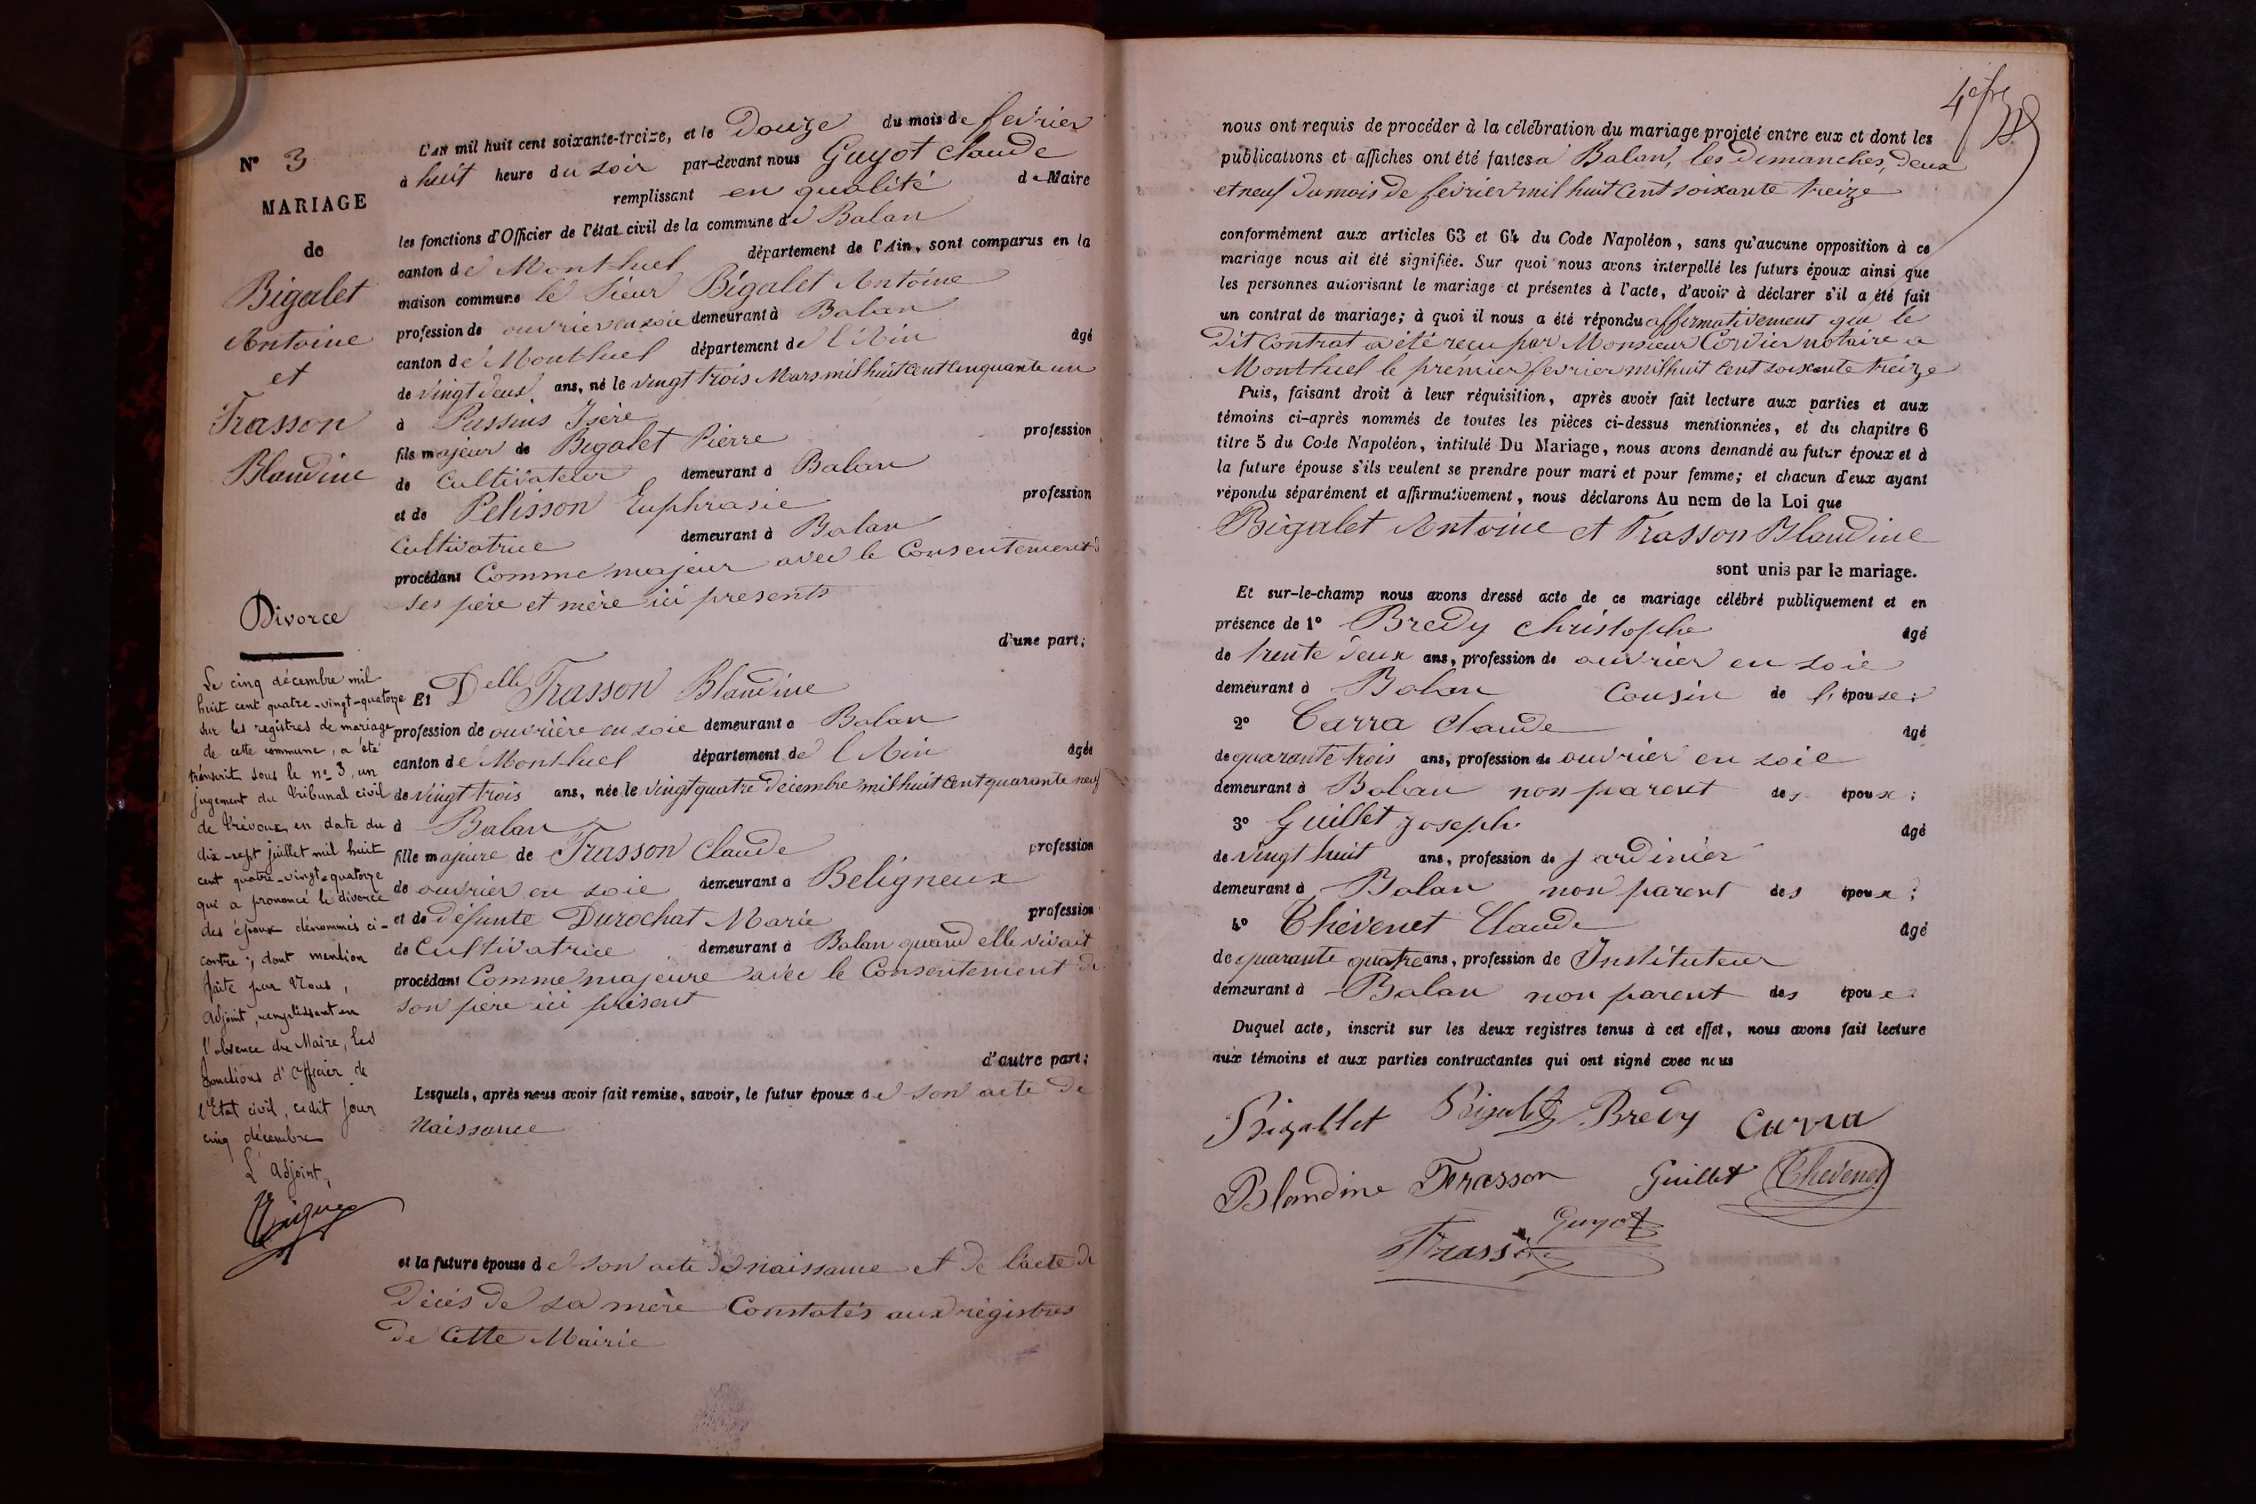 N° 3
MARIAGE
de
Bigalet
Antoine
et
Frasson
Blandine
Divorce
Le cinq décembre mil
huit cent quatre-vingt-quatorze
sur les registres de mariage
de cette commune, a été
transcrit sous le n° 3, un
jugement du tribunal civil
de Trévoux, en date du
dix-sept juillet mil huit
cent quatre-vingt-quatorze
qui a prononcé le divorce
des époux dénommés ci-
contre; dont mention
faite par Nous,
Adjoint, remplissant en
l'absence du Maire, les
fonctions d'Officier de
l'Etat civil, cedit jour
cinq décembre
L'Adjoint,
L'AN mil huit cent soixante-treize, et le Douze du mois de fevrier
à huit heure du soir par-devant nous Guyot Claude
remplissant en qualité de Maire
les fonctions d'Officier de l'état civil de la commune de Balan
canton de Montluel département de l'Ain, sont comparus en la
maison commune le Sieur Bigalet Antoine
profession de ouvrier en soie demeurant à Balan
canton de Montluel département de l'Ain âgé
de vingt deux ans, né le vingt trois Mars mil huit cent cinquante un
à Pussins Isère
fils majeur de Bigalet Pierre profession
de Cultivateur demeurant à Balan
et de Pelisson Euphrasie profession
Cultivatrice demeurant à Balan
procédant Comme majeur avec le Consentement
ses père et mère ici presents
d'une part;
Et Delle Frasson Blandine
profession de ouvrière en soie demeurant à Balan
canton de Montluel département de l'Ain âgée
de vingt trois ans, née le vingt quatre décembre mil huit cent quarante neuf
à Balan
fille majeure de Frasson Claude profession
de ouvrier en soie demeurant à Beligneux
et de défunte Durochat Marie profession
de Cultivatrice demeurant à Balan quand elle vivait
procédant Comme majeure avec le Consentement de
son père ici présent
d'autre part;
Lesquels, après nous avoir fait remise, savoir, le futur époux de son acte de
Naissance
et la future épouse de son acte de naissance et de l'acte de
Décès de sa mère Constatés aux régistres
de Cette Mairie
4e fre
nous ont requis de procéder à la célébration du mariage projeté entre eux et dont les
publications et affiches ont été faites à Balan, les Dimanches, deux
et neuf du mois de fevrier mil huit Cent soixante treize
conformément aux articles 63 et 64 du Code Napoléon, sans qu'aucune opposition à ce
mariage nous ait été signifiée. Sur quoi nous avons interpellé les futurs époux ainsi que
les personnes autorisant le mariage et présentes à l'acte, d'avoir à déclarer s'il a été fait
un contrat de mariage; à quoi il nous a été répondu affirmativement que le
Dit Contrat a été reçu par Monsieur Cordier notaire a
Montluel le premier fevrier mil huit cent soixante treize
Puis, faisant droit à leur réquisition, après avoir fait lecture aux parties et aux
témoins ci-après nommés de toutes les pièces ci-dessus mentionnées, et du chapitre 6
titre 5 du Code Napoléon, intitulé Du Mariage, nous avons demandé au futur époux et à
la future épouse s'ils veulent se prendre pour mari et pour femme; et chacun d'eux ayant
répondu séparément et affirmativement, nous déclarons Au nom de la Loi que
Bigalet Antoine et Frasson Blandine
sont unis par le mariage.
Et sur-le-champ nous avons dressé acte de ce mariage célébré publiquement et en
présence de 1° Bredy Christophe âgé
de trente deux ans, profession de ouvrier en soie
demeurant à Balan Cousin de l'épouse;
2° Carra Claude âgé
de quarante trois ans, profession de ouvrier en soie
demeurant à Balan non parent des époux;
3° Guillet Joseph âgé
de vingt huit ans, profession de jardinier
demeurant à Balan non parent des époux;
4° Chevenet Claude âgé
de quarante quatre ans, profession de Instituteur
demeurant à Balan non parent des époux
Duquel acte, inscrit sur les deux registres tenus à cet effet, nous avons fait lecture
aux témoins et aux parties contractantes qui ont signé avec nous
Bigallet Bigalet Bredy Carra
Blandine Frasson Guillet Chevenet
Guyot
Frasson